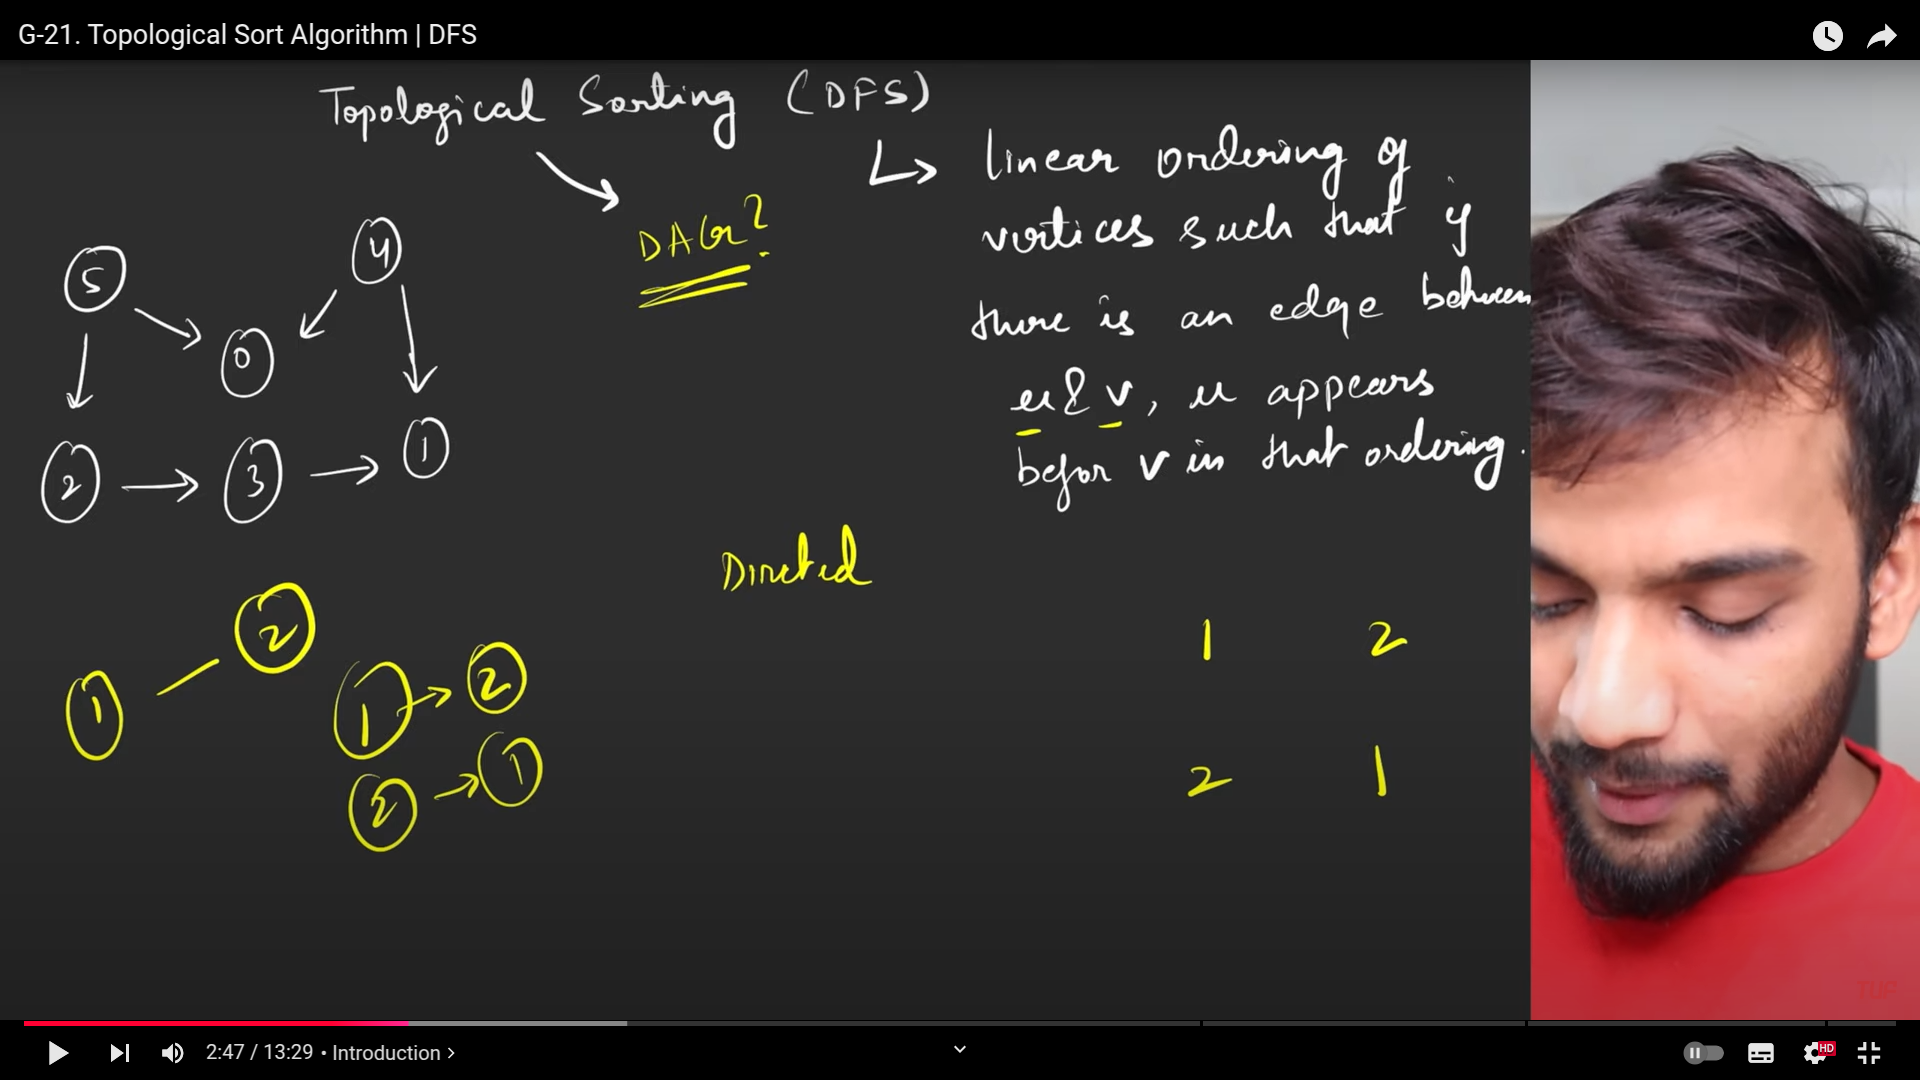 G-21. Topological Sort Algorithm | DFS
Topological Sorting (DFS)
DAG?
linear ordering of
vertices such that if
there is an edge between
u & v, u appears
befor v in that ordering.
5
4
0
2
3
1
Directed
1
2
1
2
2
1
1 2
2 1
TUF
2:47 / 13:29 • Introduction
HD